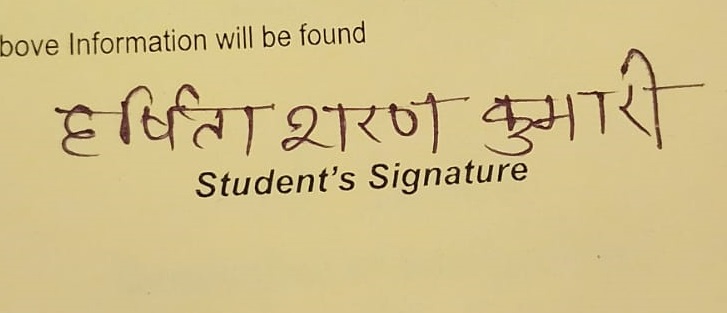 bove Information will be found
हर्षिता शरण कुमारी
Student's Signature